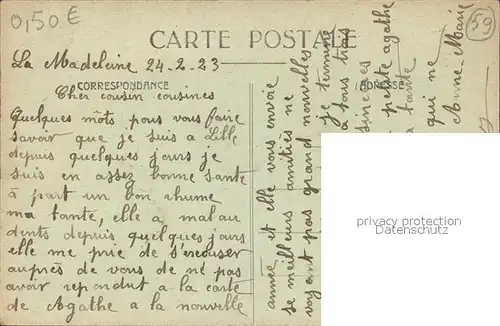 0,50€
59
CARTE POSTALE
La Madeleine 24-2-23
CORRESPONDANCE
ADRESSE
Cher cousin cousines
Quelques mots pous vous faire
savoir que je suis a Lille
depuis quelques jours je
suis en assez bonne santé
à part un bon rhume
ma tante, elle a mal au
dents depuis quelques jours
elle me prie de s'excuser
auprès de vous de né pas
avoir repondut a la carte
de Agathe a la nouvelle
année et elle vous envoie
se meilleurs amitiés ne
voyant pas grand nouvelles
je termine
a vous trois
sincères
petite agathe
tante
qui ne
Anne-Marie
privacy protection
(Oldthing.de)